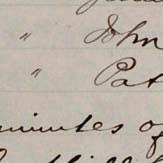 " John
" Pat
minutes of